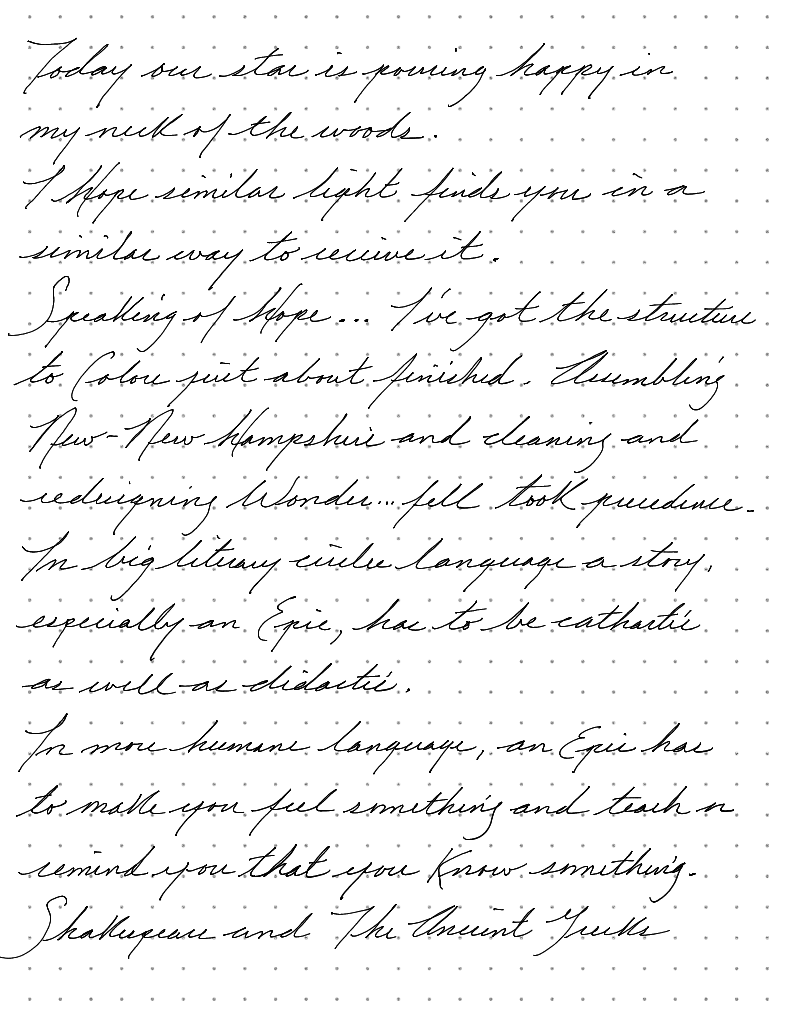 Today our star is pouring happy in
my neck of the woods.
I Hope similar light finds you in a
similar way to receive it.
Speaking of Hope... I've got the structure
to Colour just about finished. Assembling
New-New Hampshire and cleaning and
redesigning Wonder... fell took precedence.
In big literary circles language a story,
especially an Epic, has to be cathartic
as well as didactic.
In more humane language, an Epic has
to make you feel something and teach or
remind you that you Know something.
Shakespeare and The Ancient Greeks